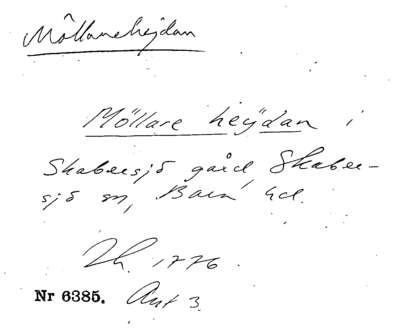 Möllarehejdan
Möllare heÿdan i
Skabersjö gård, Skaber-
sjö sn, Bara hd.
Lh. 1776.
Nr 6385. Akt 3.